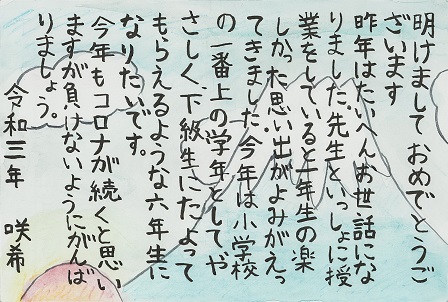 明けましておめでとうご
ざいます
昨年はたいへんお世話にな
りました。先生といっしょに授
業をしていると一年生の楽
しかった思い出がよみがえっ
てきました。今年は小学校
の一番上の学年としてや
さしく、下級生にたよって
もらえるような六年生に
なりたいです。
今年もコロナが続くと思い
ますが負けないようにがんば
りましょう。
令和三年　咲希